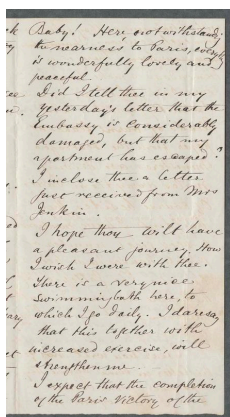 Baby! Here, notwithstand:
its nearness to Paris, every
is wonderfully lovely and
peaceful
Did I tell thee in my
yesterday's letter that the
Embassy is considerably
damaged, but that my
apartment has escaped?
I inclose thee a letter
just received from Mrs
Jenkin.
I hope thou wilt have
a pleasant journey. How
I wish I were with thee.
There is a very nice
swimming bath here, to
which I go daily. I daresay
that this together with
increased exercise, will
strengthen me.
I expect that the completion
of the Paris Victory of the